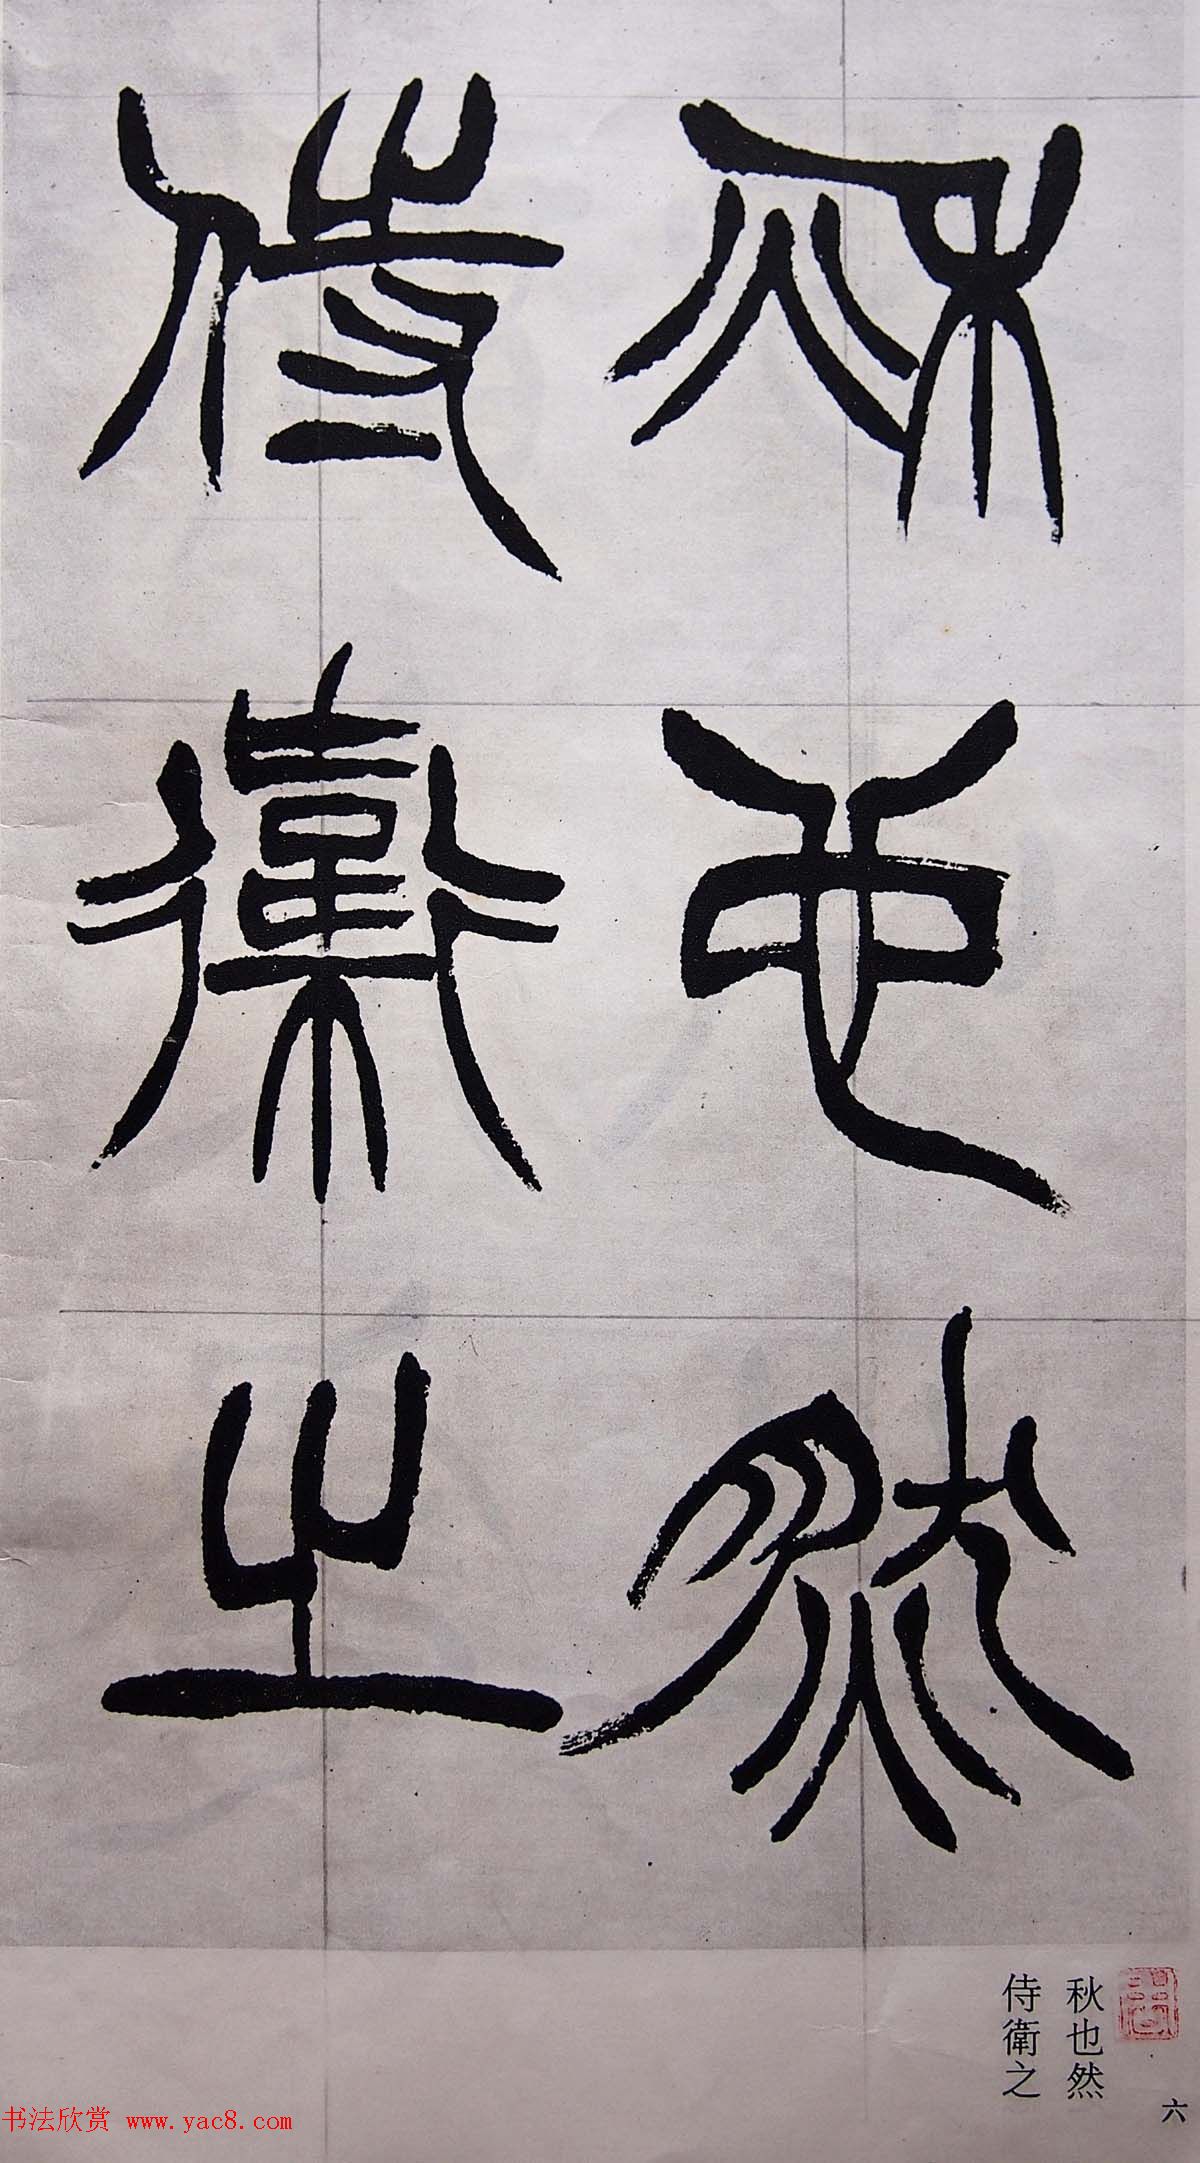 秋也然
侍衛之
秋也然
侍衛之
六
书法欣赏 www.yac8.com